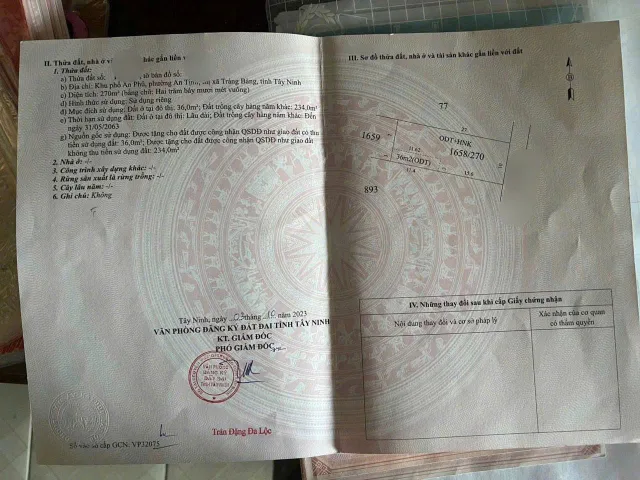 II. Thửa đất, nhà ở v hác gắn liền v
1. Thửa đất:
a) Thửa đất số: , tờ bản đồ số:
b) Địa chỉ: Khu phố An Phú, phường An Tịnh, thị xã Trảng Bàng, tỉnh Tây Ninh
c) Diện tích: 270m² (bằng chữ: Hai trăm bảy mươi mét vuông)
d) Hình thức sử dụng: Sử dụng riêng
đ) Mục đích sử dụng: Đất ở tại đô thị: 36,0m²; Đất trồng cây hàng năm khác: 234,0m²
e) Thời hạn sử dụng đất: Đất ở tại đô thị: Lâu dài; Đất trồng cây hàng năm khác: Đến
ngày 31/05/2063
g) Nguồn gốc sử dụng: Được tặng cho đất được công nhận QSDĐ như giao đất có thu
tiền sử dụng đất: 36,0m²; Được tặng cho đất được công nhận QSDĐ như giao đất
không thu tiền sử dụng đất: 234,0m²
2. Nhà ở: -/-
3. Công trình xây dựng khác: -/-
4. Rừng sản xuất là rừng trồng: -/-
5. Cây lâu năm: -/-
6. Ghi chú: Không
Tây Ninh, ngày 03 tháng 10 năm 2023
VĂN PHÒNG ĐĂNG KÝ ĐẤT ĐAI TỈNH TÂY NINH
KT. GIÁM ĐỐC
PHÓ GIÁM ĐỐC
VĂN PHÒNG
ĐĂNG KÝ
ĐẤT ĐAI
Trần Đặng Đa Lộc
Số vào sổ cấp GCN: VP12075
III. Sơ đồ thửa đất, nhà ở và tài sản khác gắn liền với đất
77
27
1659
ODT+HNK
11.62
1658/270
36m2(ODT)
11.4
15.6
893
IV. Những thay đổi sau khi cấp Giấy chứng nhận
Nội dung thay đổi và cơ sở pháp lý
Xác nhận của cơ quan
có thẩm quyền